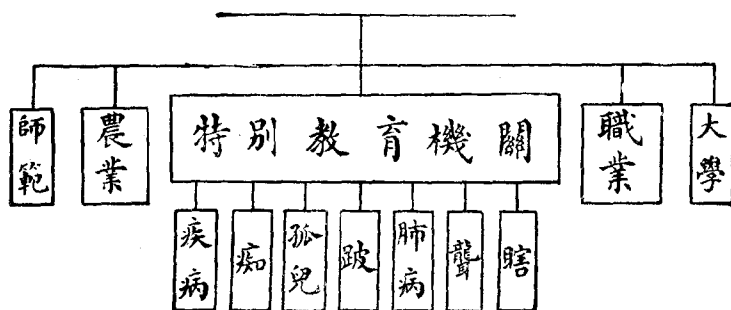 師範
農業
特別教育機關
職業
大學
疾病
痴
孤兒
跛
肺病
聾
瞎